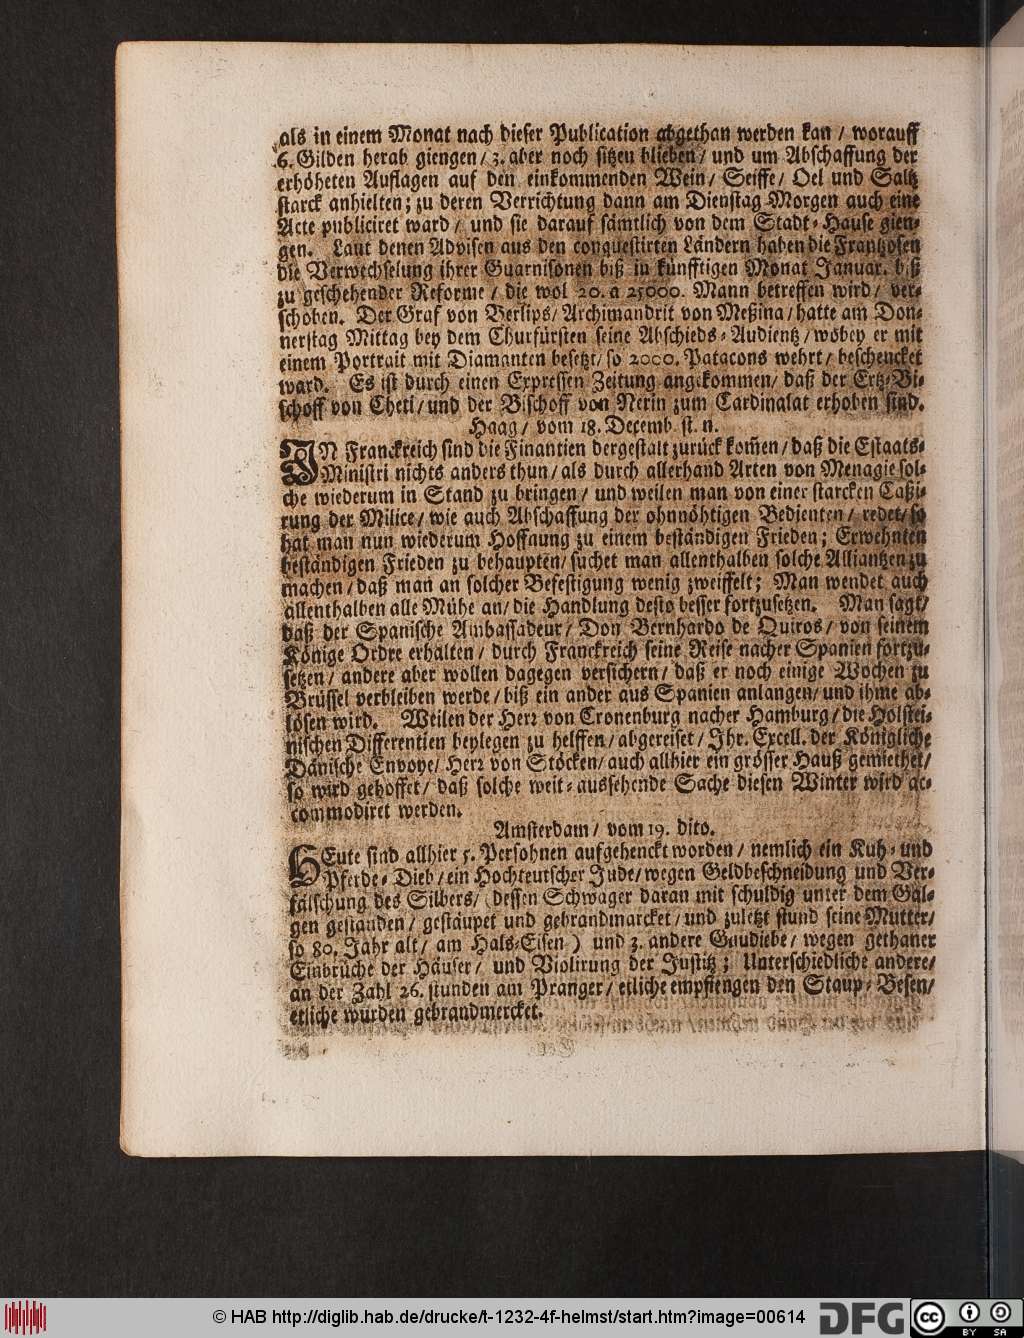 als in einem Monat nach dieser Publication abgethan werden kan / worauff
6. Gilden herab giengen / 3. aber noch sitzen blieben / und um Abschaffung der
erhöheten Auflagen auf den einkommenden Wein / Seiffe / Oel und Saltz
starck anhielten; zu deren Verrichtung dann am Dienstag Morgen auch eine
Acte publiciret ward / und sie darauf sämtlich von dem Stadt-Hause gien-
gen. Laut denen Advisen aus den conquestirten Ländern haben die Frantzosen
die Verwechselung ihrer Guarnisonen biß in künfftigen Monat Januar. biß
zu geschehender Reforme / die wol 20. a 25000. Mann betreffen wird / ver-
schoben. Der Graf von Berlips / Archimandrit von Meßina / hatte am Don-
nerstag Mittag bey dem Churfürsten seine Abschieds-Audientz / wobey er mit
einem Portrait mit Diamanten besetzt / so 2000. Patacons wehrt / beschencket
ward. Es ist durch einen Expressen Zeitung angekommen / daß der Ertz-Bi-
schoff von Cheti / und der Bischoff von Nerin zum Cardinalat erhoben sind.
Haag / vom 18. Decemb. st. n.
IN Franckreich sind die Finantien dergestalt zurück kom̃en / daß die Estaats-
Ministri nichts anders thun / als durch allerhand Arten von Menagie sol-
che wiederum in Stand zu bringen / und weilen man von einer starcken Caßi-
rung der Milice / wie auch Abschaffung der ohnnöhtigen Bedienten / redet / so
hat man nun wiederum Hoffnung zu einem beständigen Frieden; Erwehnten
beständigen Frieden zu behaupten / suchet man allenthalben solche Alliantzen zu
machen / daß man an solcher Befestigung wenig zweiffelt; Man wendet auch
allenthalben alle Mühe an / die Handlung desto besser fortzusetzen. Man sagt /
daß der Spanische Ambassadeur / Don Bernhardo de Quiros / von seinem
Könige Ordre erhalten / durch Franckreich seine Reise nacher Spanien fortzu-
setzen / andere aber wollen dagegen versichern / daß er noch einige Wochen zu
Brüssel verbleiben werde / biß ein ander aus Spanien anlangen / und ihme ab-
lösen wird. Weilen der Herr von Cronenburg nacher Hamburg / die Holstei-
nischen Differentien beylegen zu helffen / abgereiset / Ihr. Excell. der Königliche
Dänische Envoye / Herr von Stöcken / auch allhier ein grösser Hauß gemiethet /
so wird gehoffet / daß solche weit-aussehende Sache diesen Winter wird ac-
commodiret werden.
Amsterdam / vom 19. dito.
HEute sind allhier 5. Persohnen aufgehenckt worden / nemlich ein Kuh- und
Pferde-Dieb / ein Hochteutscher Jude / wegen Geldbeschneidung und Ver-
fälschung des Silbers / (dessen Schwager daran mit schuldig unter dem Gal-
gen gestanden / gestäupet und gebrandmarcket / und zuletzt stund seine Mutter /
so 80. Jahr alt / am Hals-Eisen) und 3. andere Gaudiebe / wegen gethaner
Einbrüche der Häuser / und Violirung der Justitz; Unterschiedliche andere /
an der Zahl 26. stunden am Pranger / etliche empfiengen den Staup-Besen /
etliche wurden gebrandmercket.
© HAB http://diglib.hab.de/drucke/t-1232-4f-helmst/start.htm?image=00614
DFG
cc BY SA